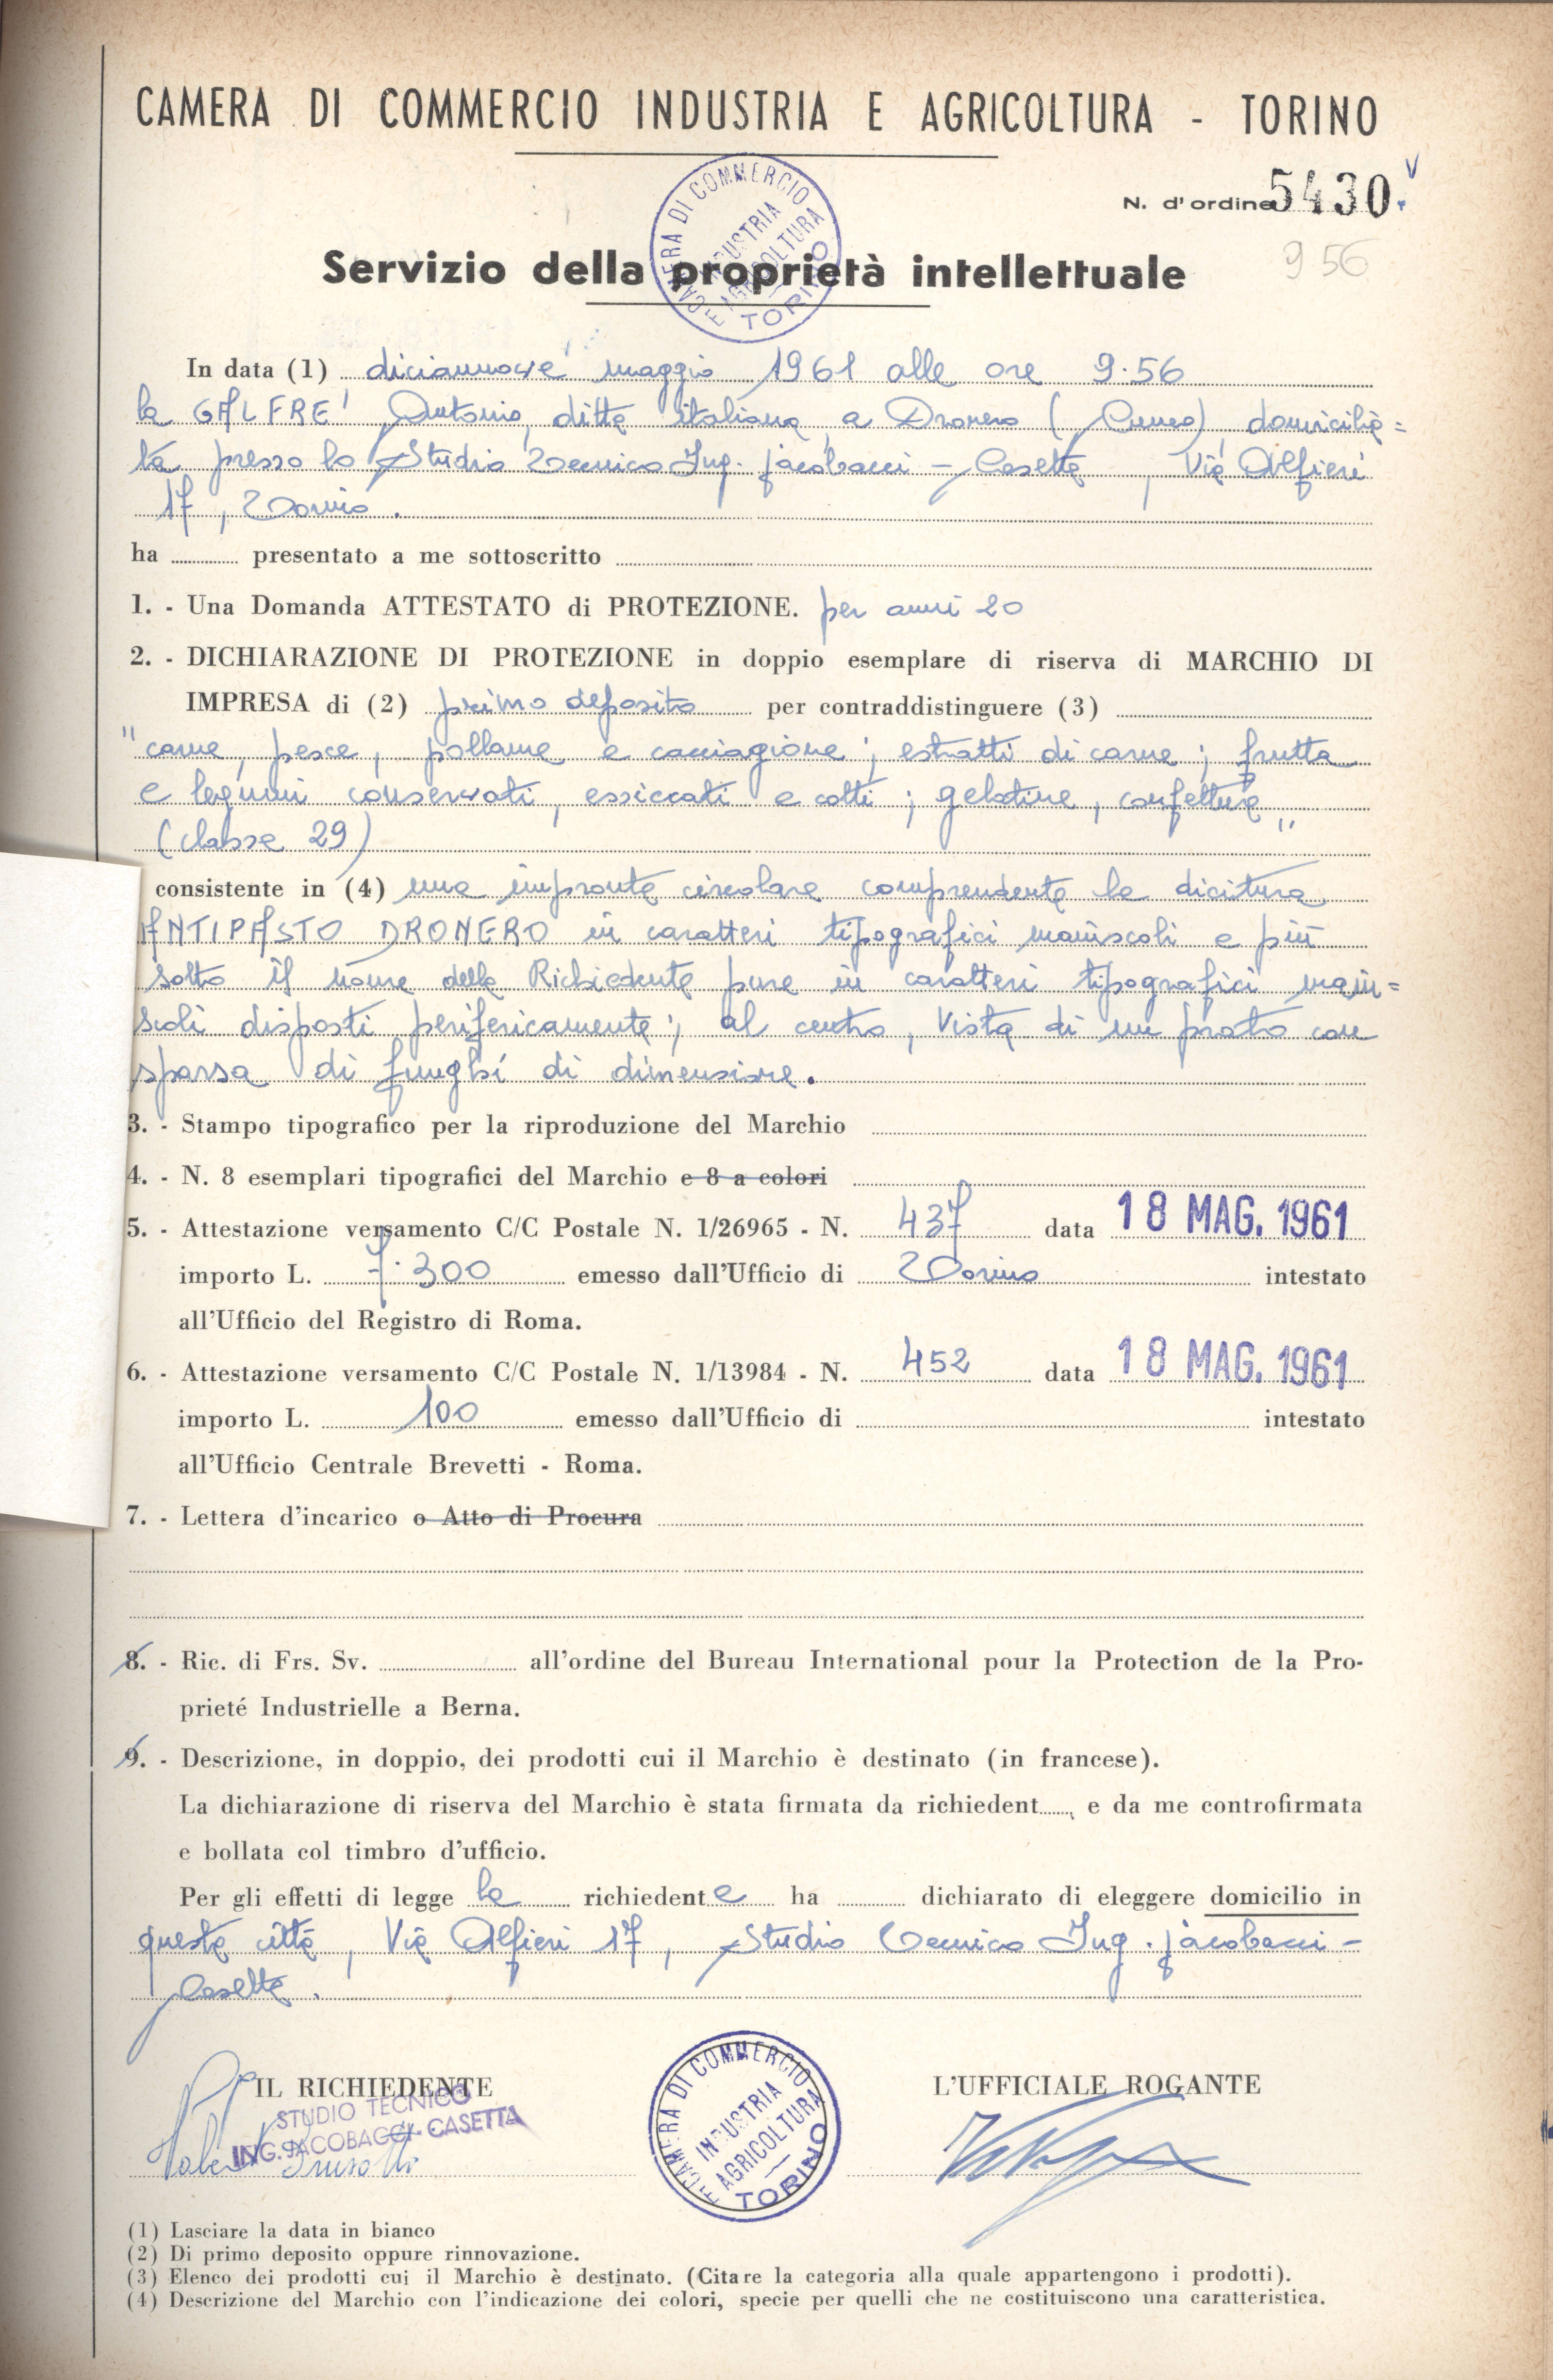 CAMERA DI COMMERCIO INDUSTRIA E AGRICOLTURA - TORINO
N. d'ordine 5430.
956
CAMERA DI COMMERCIO INDUSTRIA E AGRICOLTURA TORINO
Servizio della proprietà intellettuale
In data (1) diciannove maggio 1961 alle ore 9.56
la GALFRE' Antonio, ditta italiana, a Dronero (Cuneo), domicilia=
ta presso lo Studio Tecnico Ing. Jacobacci - Casetta, Via Alfieri
17, Torino.
ha presentato a me sottoscritto
1. - Una Domanda ATTESTATO di PROTEZIONE. per anni 20
2. - DICHIARAZIONE DI PROTEZIONE in doppio esemplare di riserva di MARCHIO DI
IMPRESA di (2) primo deposito per contraddistinguere (3)
"carne, pesce, pollame e cacciagione; estratti di carne; frutta
e legumi conservati, essiccati e cotti; gelatine, confetture"
(classe 29)
consistente in (4) una impronta circolare comprendente la dicitura
ANTIPASTO DRONERO in caratteri tipografici maiuscoli e più
sotto il nome della Richiedente pure in caratteri tipografici maiu=
scoli disposti perifericamente; al centro, vista di un prato con
sparsa di funghi di dimensione.
3. - Stampo tipografico per la riproduzione del Marchio
4. - N. 8 esemplari tipografici del Marchio e 8 a colori
5. - Attestazione versamento C/C Postale N. 1/26965 - N. 437 data 18 MAG. 1961
importo L. 7.300 emesso dall'Ufficio di Torino intestato
all'Ufficio del Registro di Roma.
6. - Attestazione versamento C/C Postale N. 1/13984 - N. 452 data 18 MAG. 1961
importo L. 100 emesso dall'Ufficio di intestato
all'Ufficio Centrale Brevetti - Roma.
7. - Lettera d'incarico o Atto di Procura
8. - Ric. di Frs. Sv. all'ordine del Bureau International pour la Protection de la Pro-
prieté Industrielle a Berna.
9. - Descrizione, in doppio, dei prodotti cui il Marchio è destinato (in francese).
La dichiarazione di riserva del Marchio è stata firmata da richiedent, e da me controfirmata
e bollata col timbro d'ufficio.
Per gli effetti di legge la richiedente ha dichiarato di eleggere domicilio in
questa città, Via Alfieri 17, Studio Tecnico Ing. Jacobacci -
Casetta.
IL RICHIEDENTE
L'UFFICIALE ROGANTE
STUDIO TECNICO
ING. JACOBACCI-CASETTA
CAMERA DI COMMERCIO INDUSTRIA E AGRICOLTURA TORINO
(1) Lasciare la data in bianco
(2) Di primo deposito oppure rinnovazione.
(3) Elenco dei prodotti cui il Marchio è destinato. (Citare la categoria alla quale appartengono i prodotti).
(4) Descrizione del Marchio con l'indicazione dei colori, specie per quelli che ne costituiscono una caratteristica.